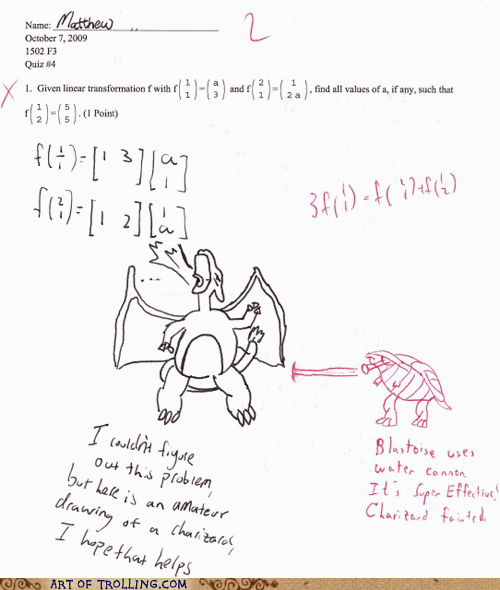 Name: Matthew
2
October 7, 2009
1502 F3
Quiz #4
X 1. Given linear transformation f with f(1 1)=(a 3) and f(2 1)=(1 2a), find all values of a, if any, such that
f(1 2)=(5 5). (1 Point)
f(1 1)=[1 3][a 1]
f(2 1)=[1 2][1 a]
3f(1 1)=f(2 1)+f(1 2)
...
I couldn't figure
out this problem,
but here is an amateur
drawing of a charizard,
I hope that helps
Blastoise uses
water cannon
It's Super Effective!
Charizard fainted.
ART OF TROLLING.COM